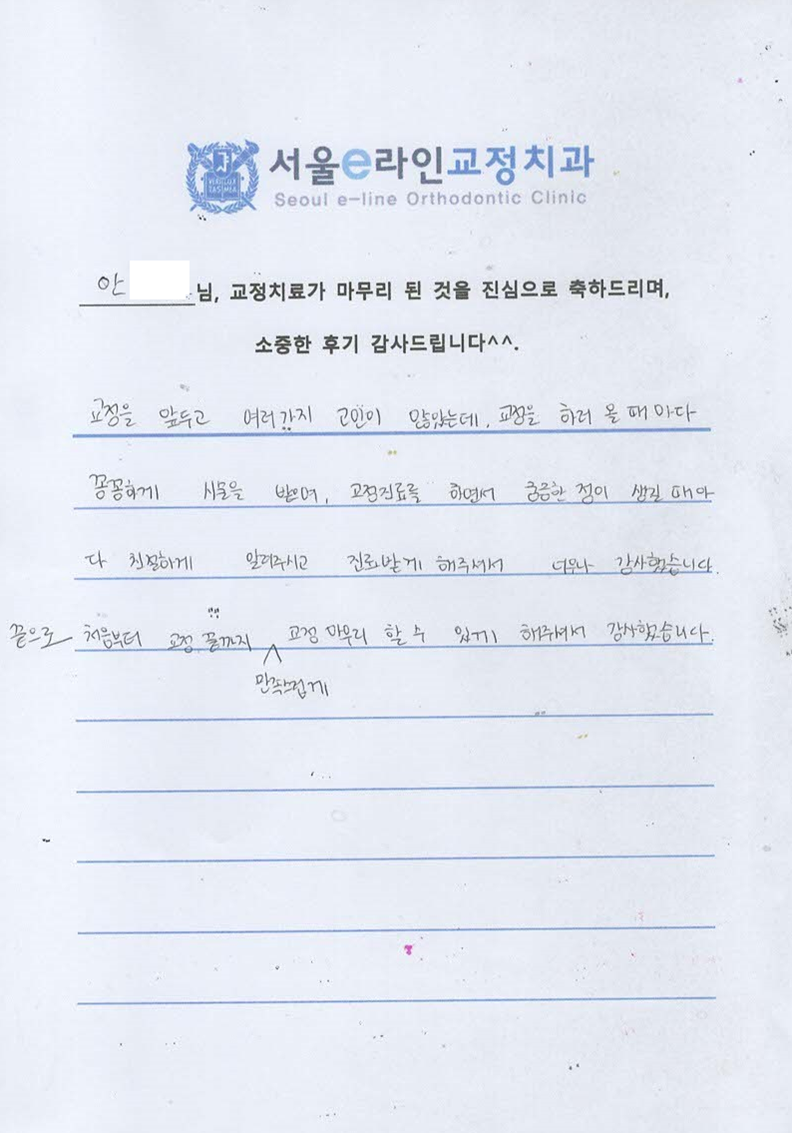 서울e라인교정치과
Seoul e-line Orthodontic Clinic
안 님, 교정치료가 마무리 된 것을 진심으로 축하드리며,
소중한 후기 감사드립니다^^.
교정을 앞두고 여러가지 고민이 많았는데, 교정을 하러 올 때 마다
꼼꼼하게 시물을 받으며, 교정진료를 하면서 궁금한 점이 생길 때마
다 친절하게 알려주시고 진료받게 해주셔서 너무나 감사했습니다.
끝으로 처음부터 교정 끝까지 교정 마무리 할 수 있게 해주셔서 감사했습니다.
만족스럽게